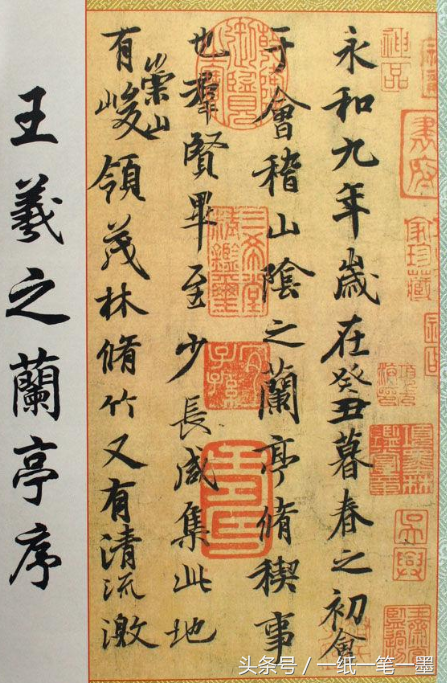 永和九年歲在癸丑暮春之初會
于會稽山陰之蘭亭脩稧事
也羣賢畢至少長咸集此地
有崇山峻領茂林脩竹又有清流激
王羲之蘭亭序
神品
三希堂精鑑璽
宜子孫
头条号 / 一纸一笔一墨